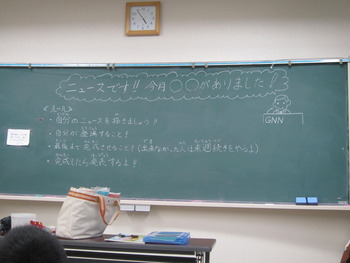 ニュースです!! 今月〇〇がありました!
GNN
<ルール>
・自分のニュースを描きましょう!
・自分が登場すること!
・最後まで完成させること! (出来なかった人は来週続きをやるよ)
・完成したら発表するよ!